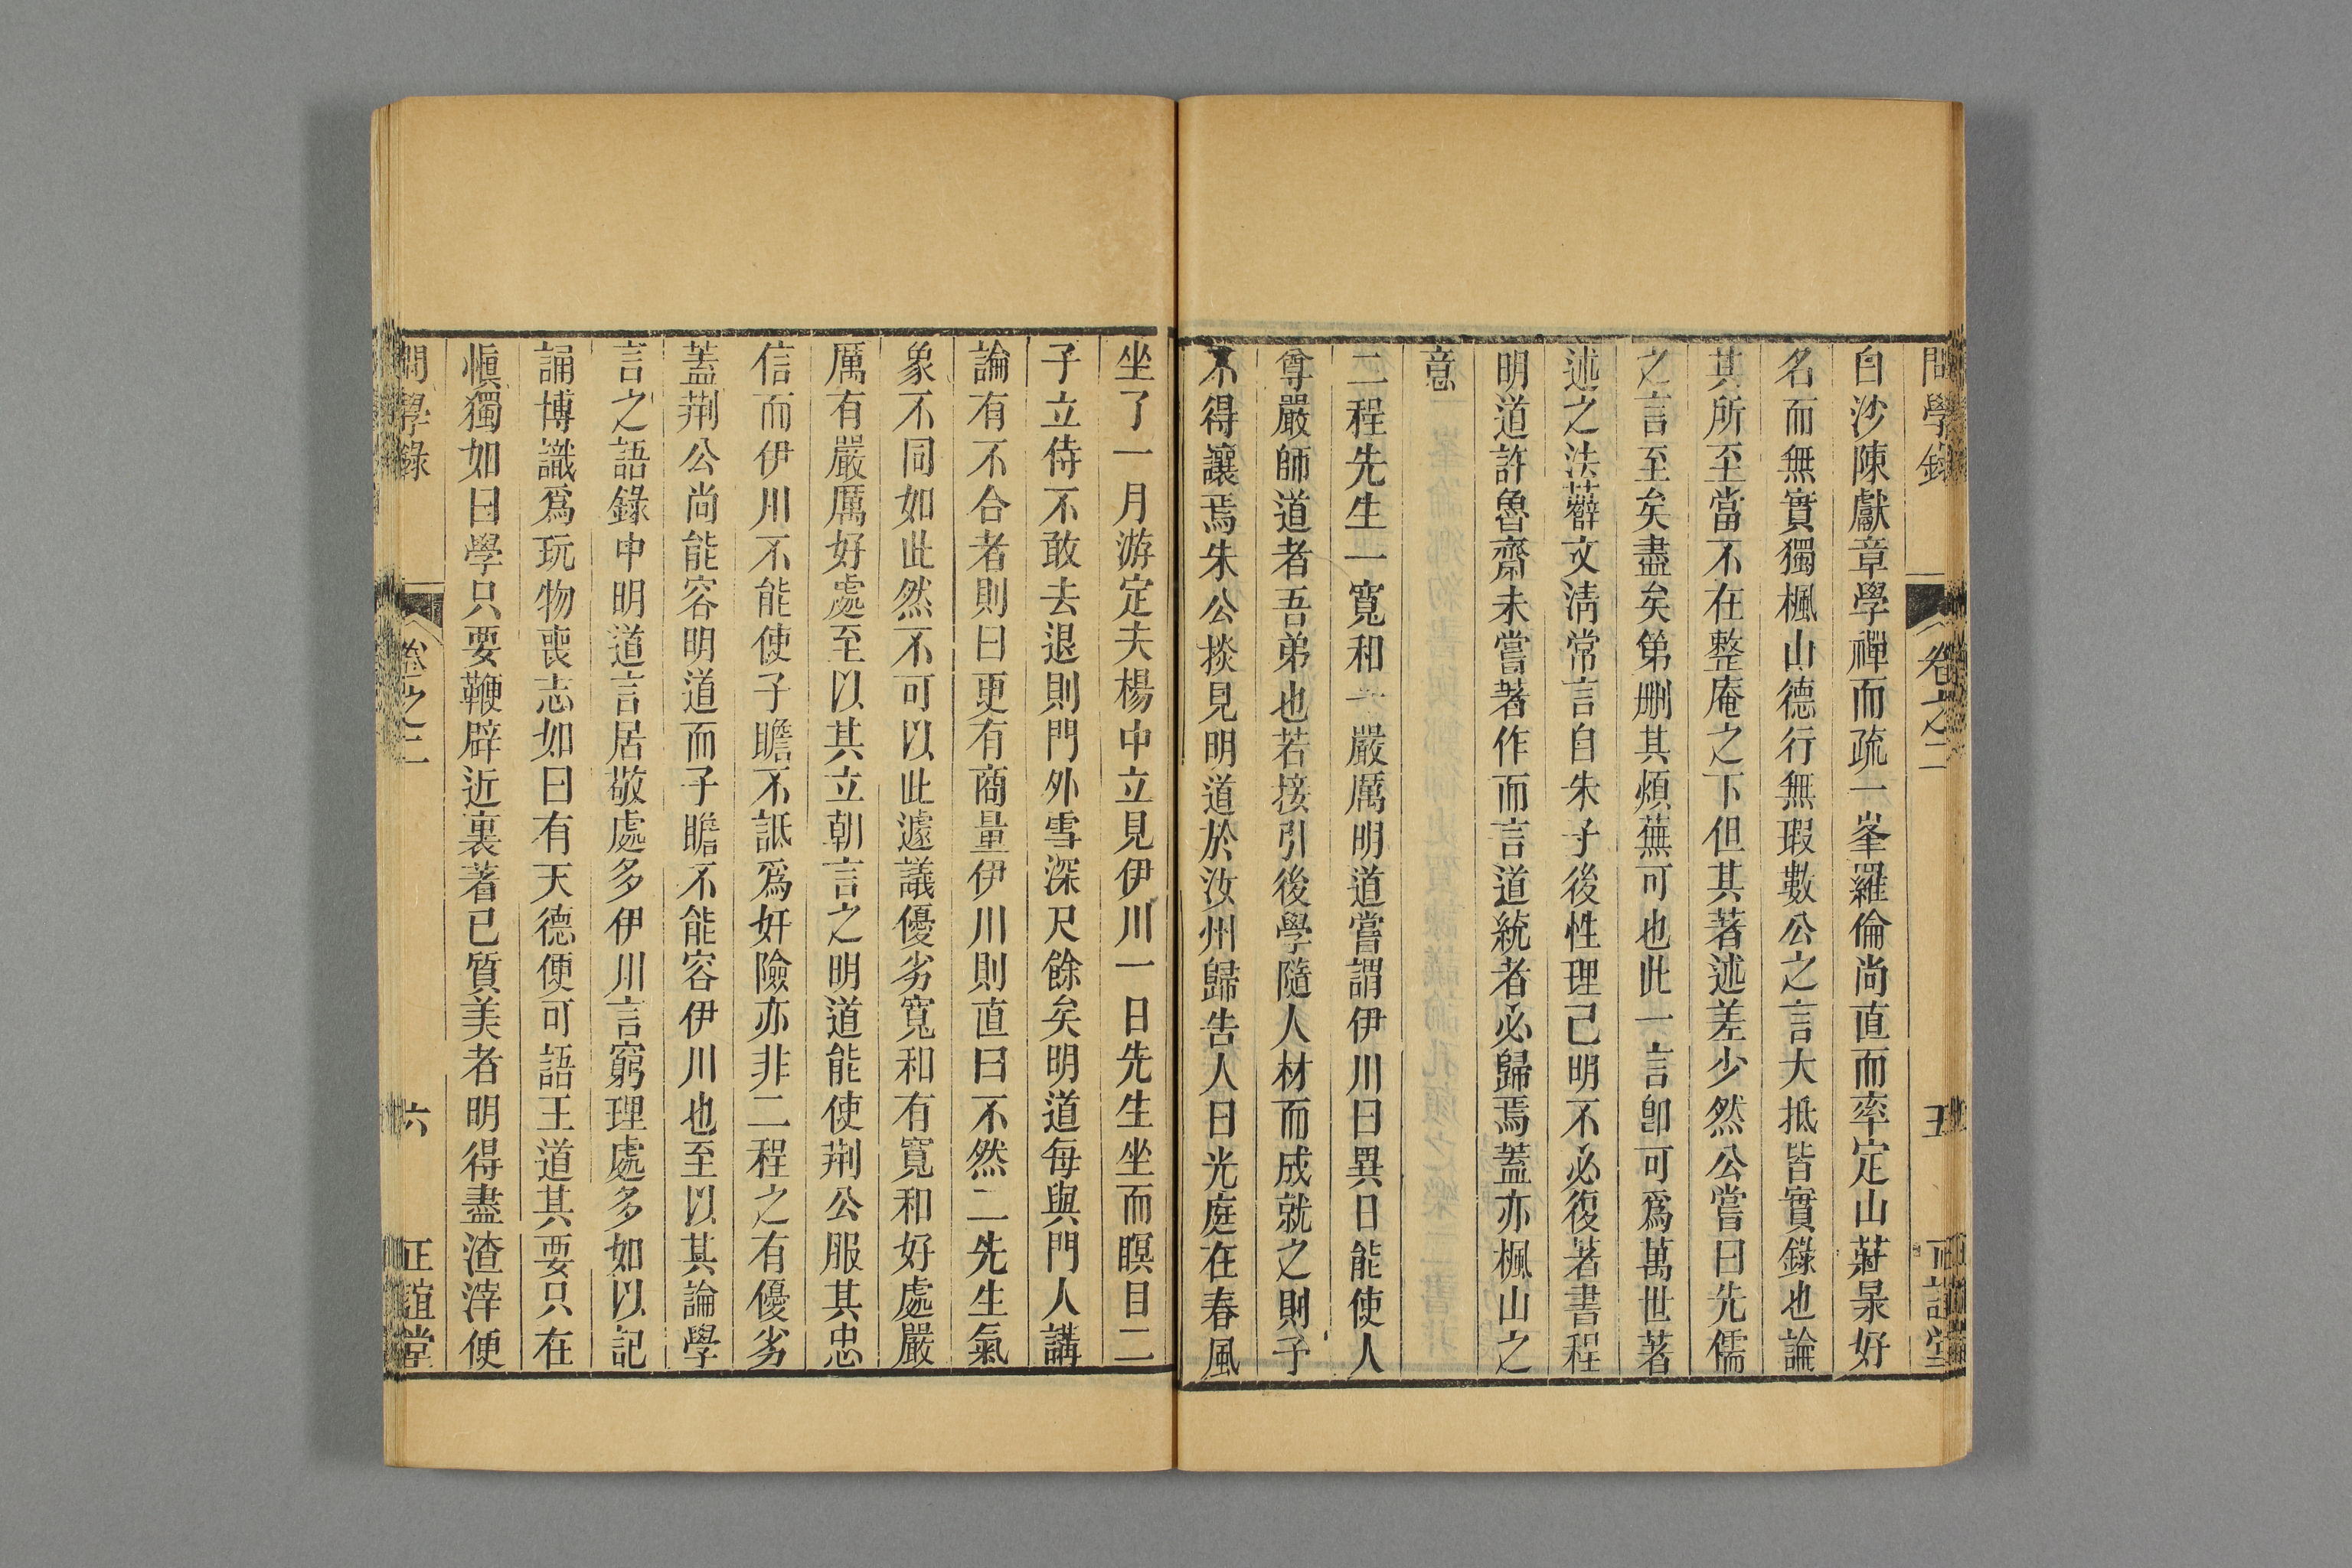 問學錄 卷之二 五 正誼堂
白沙陳獻章學禪而疏一峯羅倫尚直而率定山莊㫤好
名而無實獨楓山德行無瑕數公之言大抵皆實錄也論
其所至當不在整庵之下但其著述差少然公嘗曰先儒
之言至矣盡矣第刪其煩蕪可也此一言卽可爲萬世著
述之法薛文淸常言自朱子後性理已明不必復著書程
明道許魯齋未嘗著作而言道統者必歸焉蓋亦楓山之
意
二程先生一寬和一嚴厲明道嘗謂伊川曰異日能使人
尊嚴師道者吾弟也若接引後學隨人材而成就之則予
不得讓焉朱公掞見明道於汝州歸告人曰光庭在春風
坐了一月游定夫楊中立見伊川一日先生坐而瞑目二
子立侍不敢去退則門外雪深尺餘矣明道每與門人講
論有不合者則曰更有商量伊川則直曰不然二先生氣
象不同如此然不可以此遽議優劣寬和有寬和好處嚴
厲有嚴厲好處至以其立朝言之明道能使荆公服其忠
信而伊川不能使子瞻不詆爲奸險亦非二程之有優劣
蓋荆公尚能容明道而子瞻不能容伊川也至以其論學
言之語錄中明道言居敬處多伊川言窮理處多如以記
誦博識爲玩物喪志如曰有天德便可語王道其要只在
愼獨如曰學只要鞭辟近裏著已質美者明得盡渣滓便
問學錄 卷之二 六 正誼堂